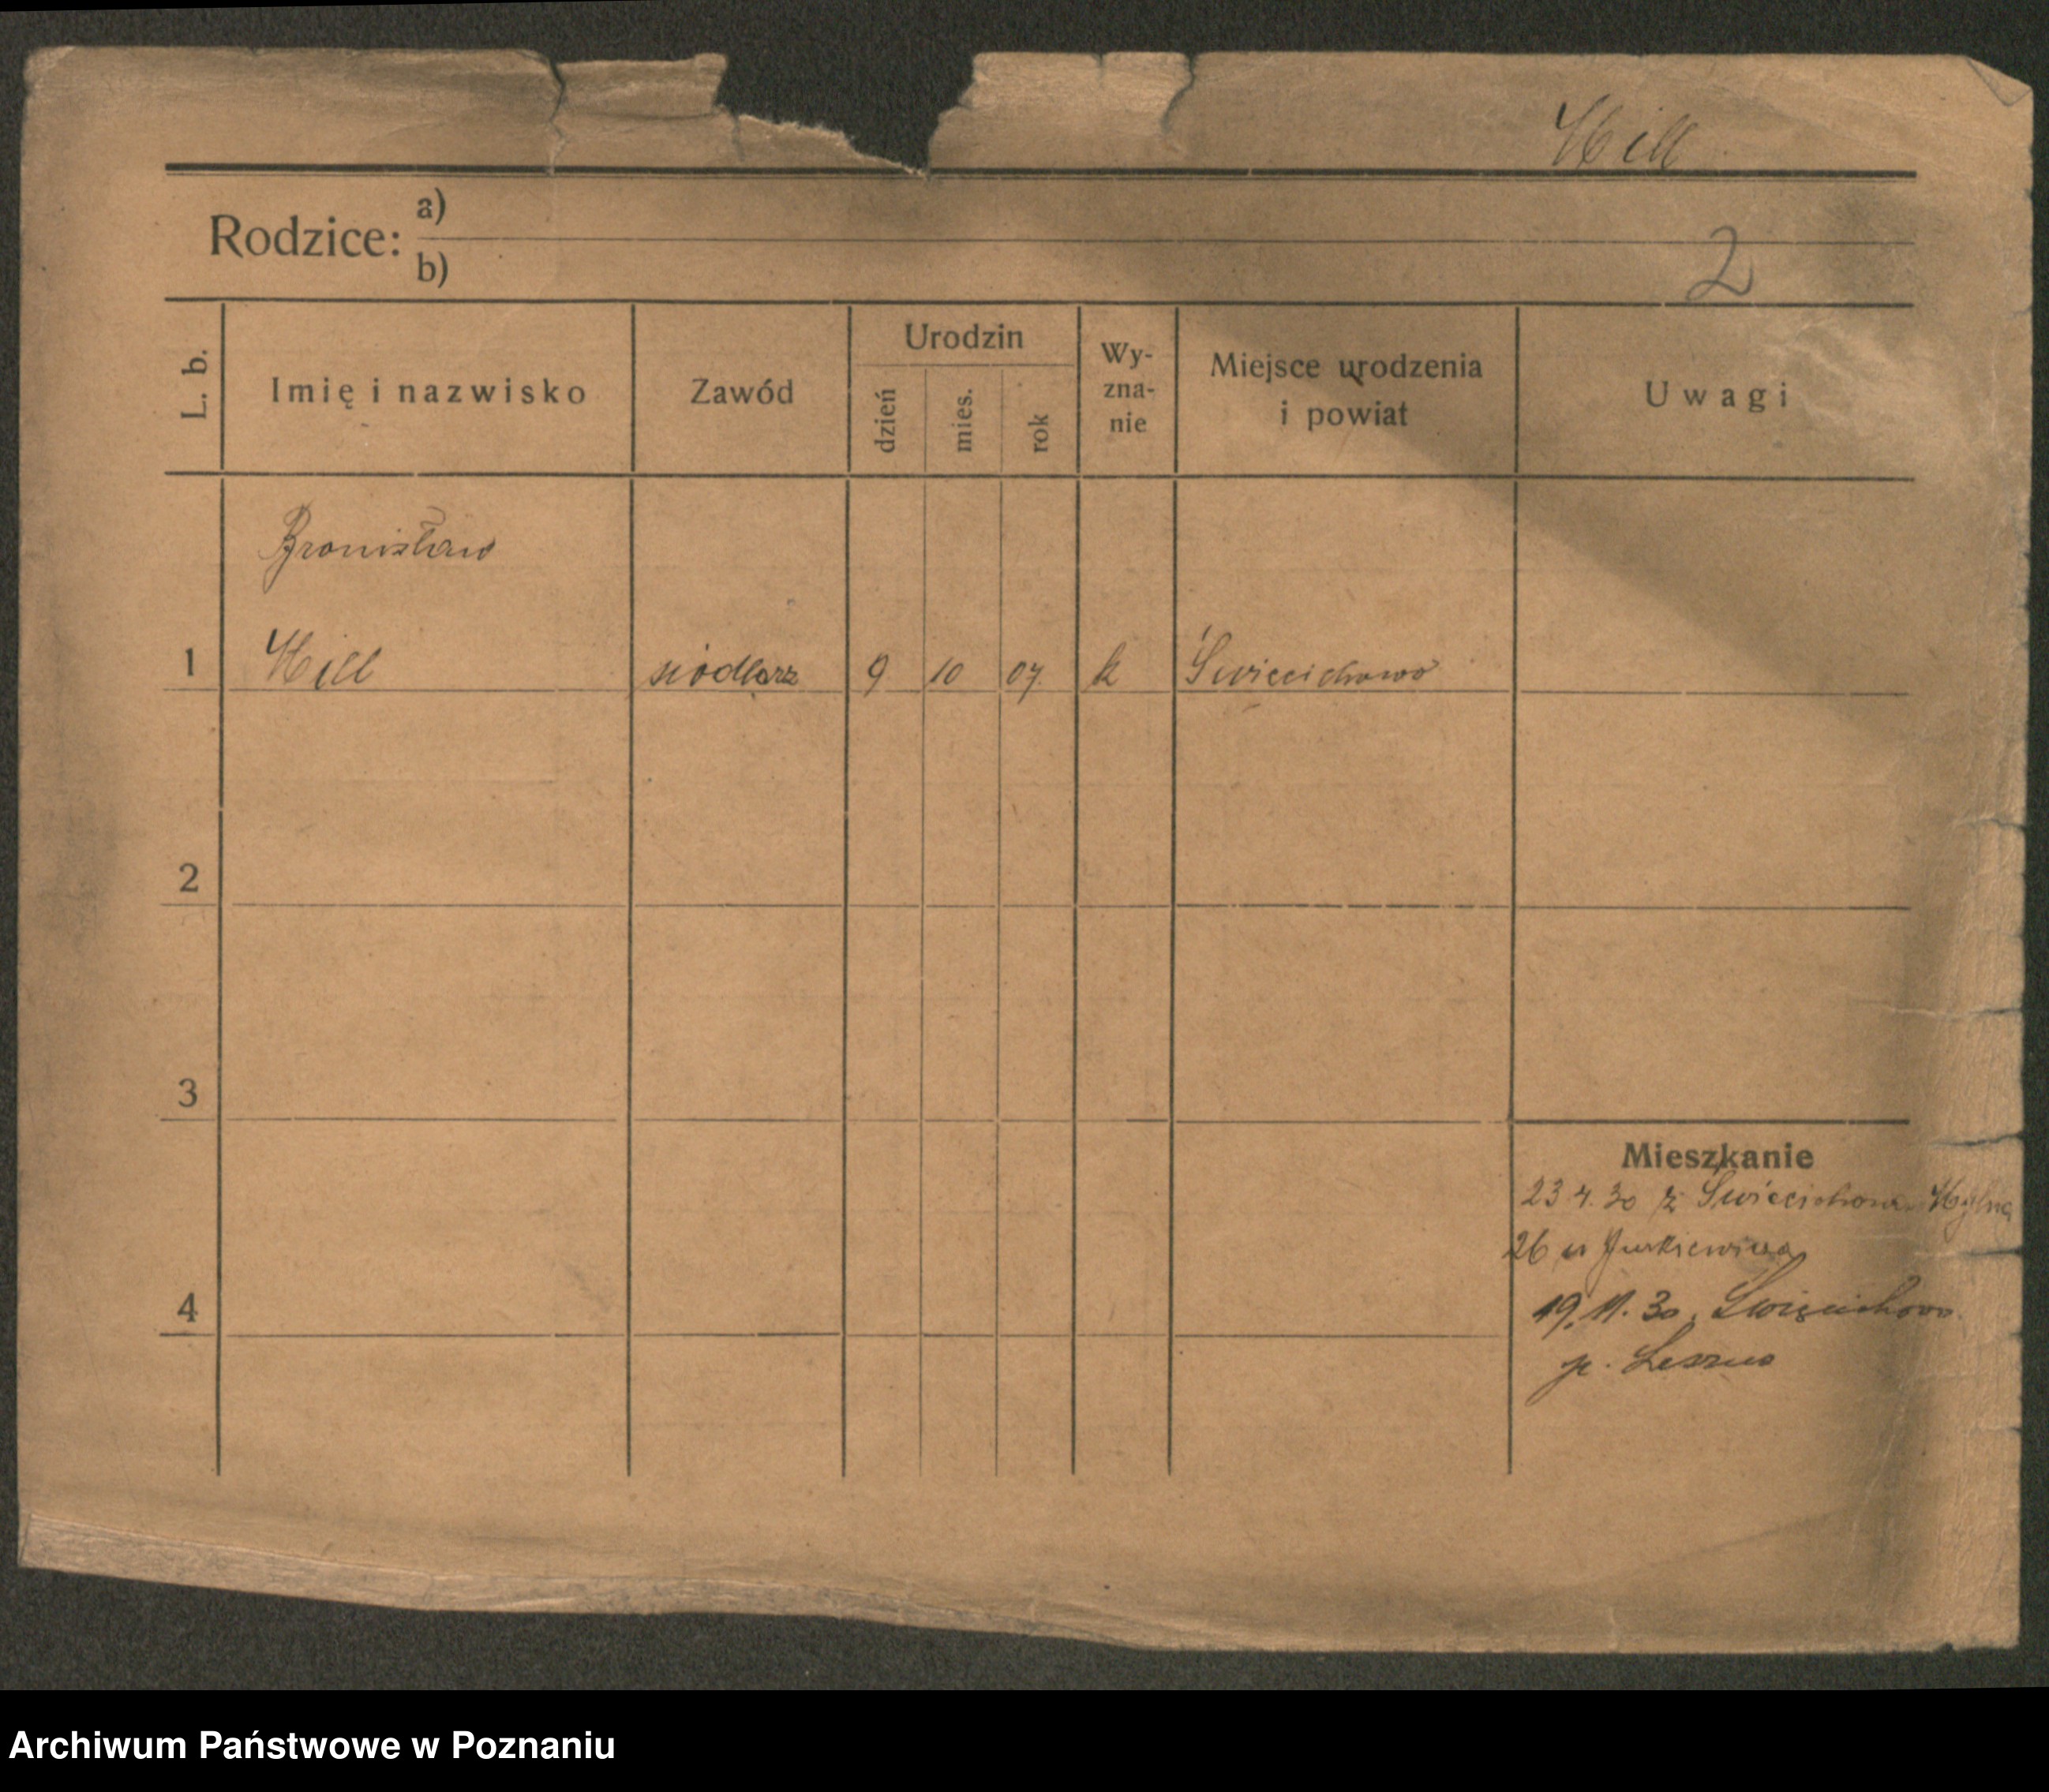 Hill
Rodzice: a)
b)
2
L. b.
Imię i nazwisko
Zawód
Urodzin
dzień
mies.
rok
Wy-
zna-
nie
Miejsce urodzenia
i powiat
Uwagi
Bronisław
1 Hill siodlarz 9 10 07. k Święcichowo
2
3
Mieszkanie
23 4. 30 z Święcichowa
26 u
4
19. 11. 30.
p. Leszno
Archiwum Państwowe w Poznaniu